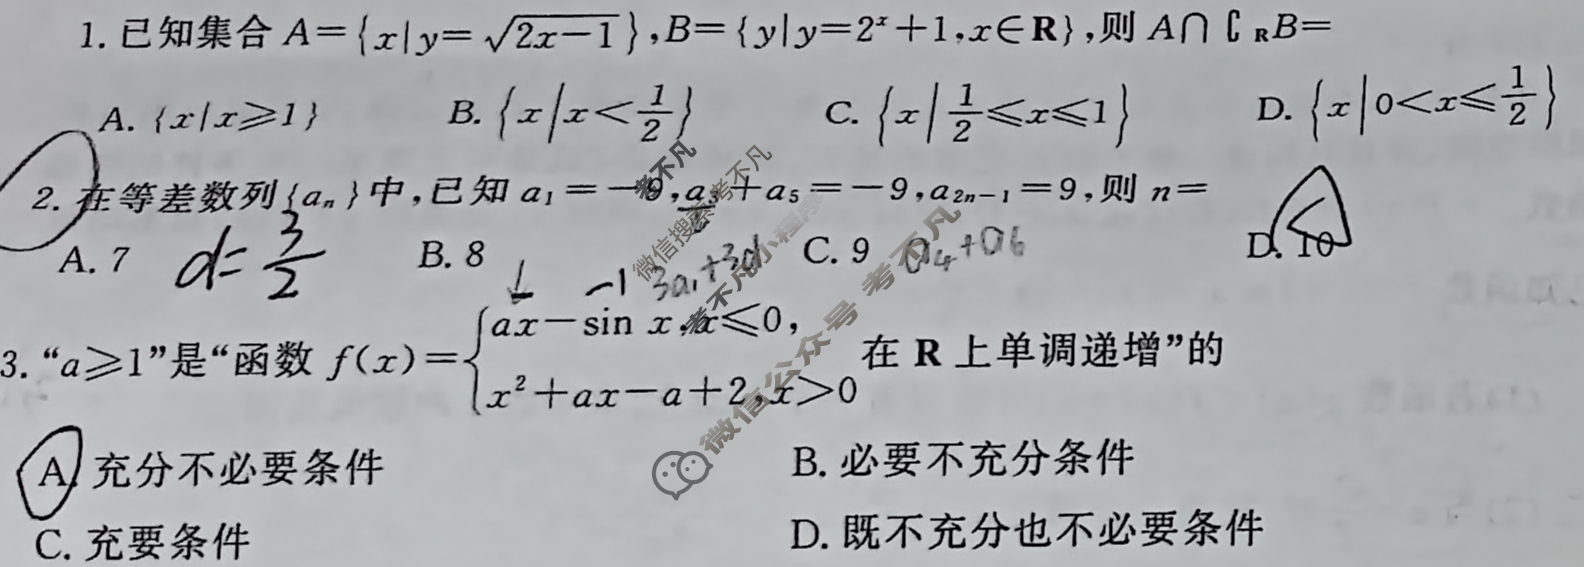 1. 已知集合 A={x|y=√(2x-1)},B={y|y=2ˣ+1,x∈R},则 A∩∁_R B=
A. {x|x≥1} B. {x|x<1/2} C. {x|1/2≤x≤1} D. {x|0<x≤1/2}
2. 在等差数列{aₙ}中,已知 a₁=-9,a₃+a₅=-9,a₂ₙ₋₁=9,则 n=
A. 7 B. 8 C. 9 D. 10
d=3/2
↓ -1 3a₁+3d
a₄+a6
3. “a≥1”是“函数 f(x)={ax-sin x,x≤0,
x²+ax-a+2,x>0
在 R 上单调递增”的
A. 充分不必要条件 B. 必要不充分条件
C. 充要条件 D. 既不充分也不必要条件
考不凡
微信搜索考不凡
考不凡小程序
微信公众号 考不凡